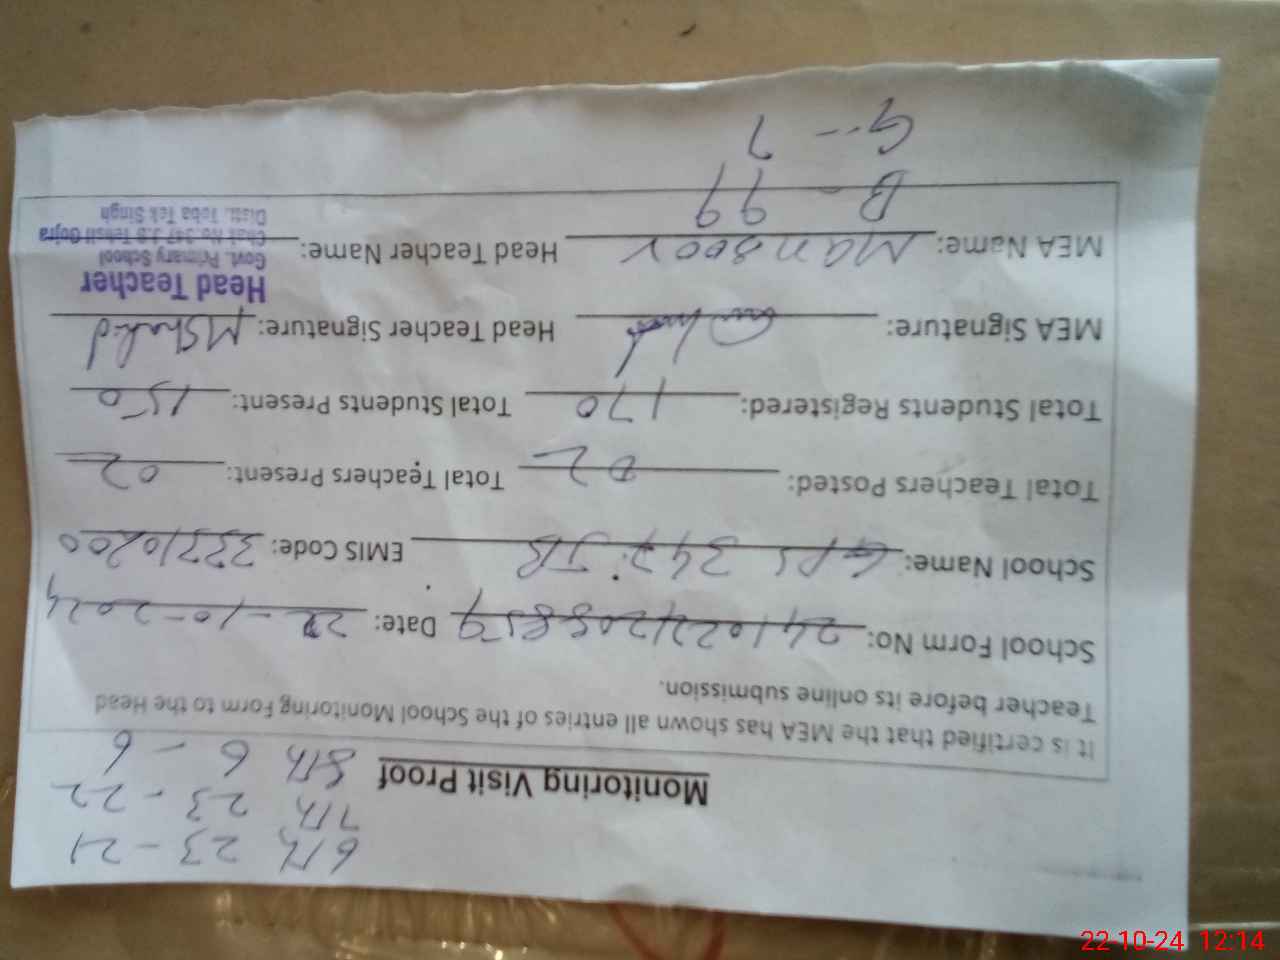 6th 23 - 21
7th 23 - 22
8th 6 - 6
Monitoring Visit Proof
It is certified that the MEA has shown all entries of the School Monitoring Form to the Head
Teacher before its online submission.
School Form No: 241022120885 Date: 22-10-2024
School Name: GPS 347 JB EMIS Code: 33310200
Total Teachers Posted: 02 Total Teachers Present: 02
Total Students Registered: 170 Total Students Present: 150
MEA Signature: Head Teacher Signature: MShahid
Head Teacher
Govt. Primary School
MEA Name: Mansoor Head Teacher Name:
Chak No 347 J.B Tehsil Gojra
Distt. Toba Tek Singh
B - 99
G -- ?
22-10-24 12:14